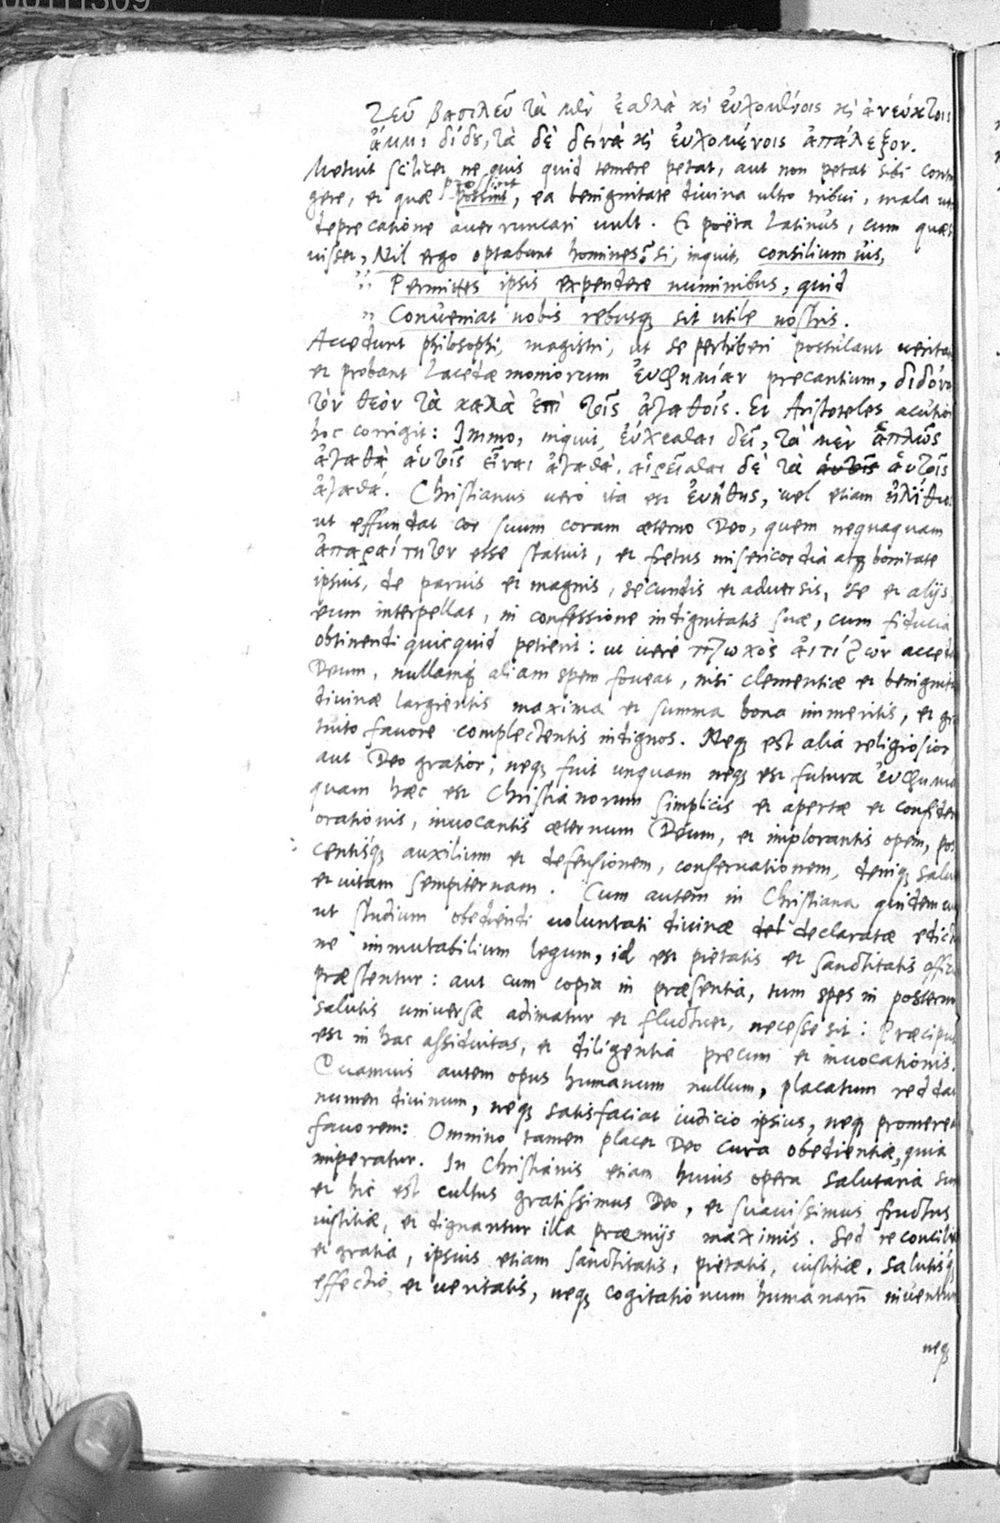 Ζεῦ βασιλεῦ τὰ μὲν ἐσθλὰ κὶ εὐχομένοις κὶ ἀνεύκτοις
ἄμμι δίδου, τὰ δὲ δεινὰ κὶ εὐχομένοις ἀπάλεξον.
Metuit scilicet ne quis quid temere petat, aut non petat sibi contin
gere, et quæ possint, ea benignitate divina ultro tribui, mala
deprecatione averruncari vult. Et poëta Latinus, cum quæs
uisset, Nil ergo optabunt homines? si, inquit, consilium uis,
" Permittes ipsis expendere numinibus, quid
" Conueniat nobis rebusq sit utile nostris.
Accedunt philosophi, magistri, ut se perhiberi postulant veritat
et probant Lacedæmoniorum ἐυφημίαν precantium, διδόνα
τὸν θεὸν τὰ καλὰ ἐπὶ τοῖς ἀγαθοῖς. Et Aristoteles acutio
hoc corrigit: Immo, inquit, εὔχεσθαι δεῖ, τὰ μὲν ἁπλῶς
ἀγαθὰ αὐτοῖς εἶναι ἀγαθά, αἱρεῖσθαι δὲ τὰ αὐτοῖς αὑτοῖς
ἀγαθά. Christianus vero ita est ἐυήθης, vel etiam
ut effundat cor suum coram æterno Deo, quem nequaquam
ἀπαραίτητον esse statuit, et fretus misericordia atq bonitate
ipsius, de parvis et magnis, secundis et adversis, se et alijs
eum interpellat, in confessione indignitatis suæ, cum fiducia
obtinendi quicquid petierit: ut vere πτωχὸς ἀιτίζων acced
Deum, nullamq aliam spem foveat, nisi clementiæ et benignita
divinæ largientis maxima et summa bona immeritis, et gra
tuito favore complectentis indignos. Neq est alia religiosior
aut Deo gratior, neq fuit unquam neq est futura ἐυφημία
quam hæc est Christianorum simplicis et apertæ et confiden
orationis, invocantis æternum Deum, et implorantis opem, pos
centisq auxilium et defensionem, conservationem, deniq salu
et vitam sempiternam. Cum autem in Christiana quidem
ut studium obediendi voluntati divinæ del declaratæ edict
ne immutabilium legum, id est pietatis et sanctitatis offic
præstentur: aut cum copia in præsentia, tum spes in posterum
salutis universæ adimatur et fluctuet, necesse sit: Præcipu
est in hac assiduitas, et diligentia precum et invocationis.
Quamvis autem opus humanum nullum, placatum reddat
numen divinum, neq satisfaciat iudicio ipsius, neq promerea
favorem: Omnino tamen placet Deo cura obedientiæ, quia
imperatur. In Christianis etiam huius opera salutaria sun
et hic est cultus gratissimus Deo, et suavissimus fructus
iustitiæ, et dignantur illa præmijs maximis. Sed reconcilia
et gratia, ipsius etiam sanctitatis, pietatis, iustitiæ, salutisq
effectio et veritatis, neq cogitationum humanarū inventum
neq